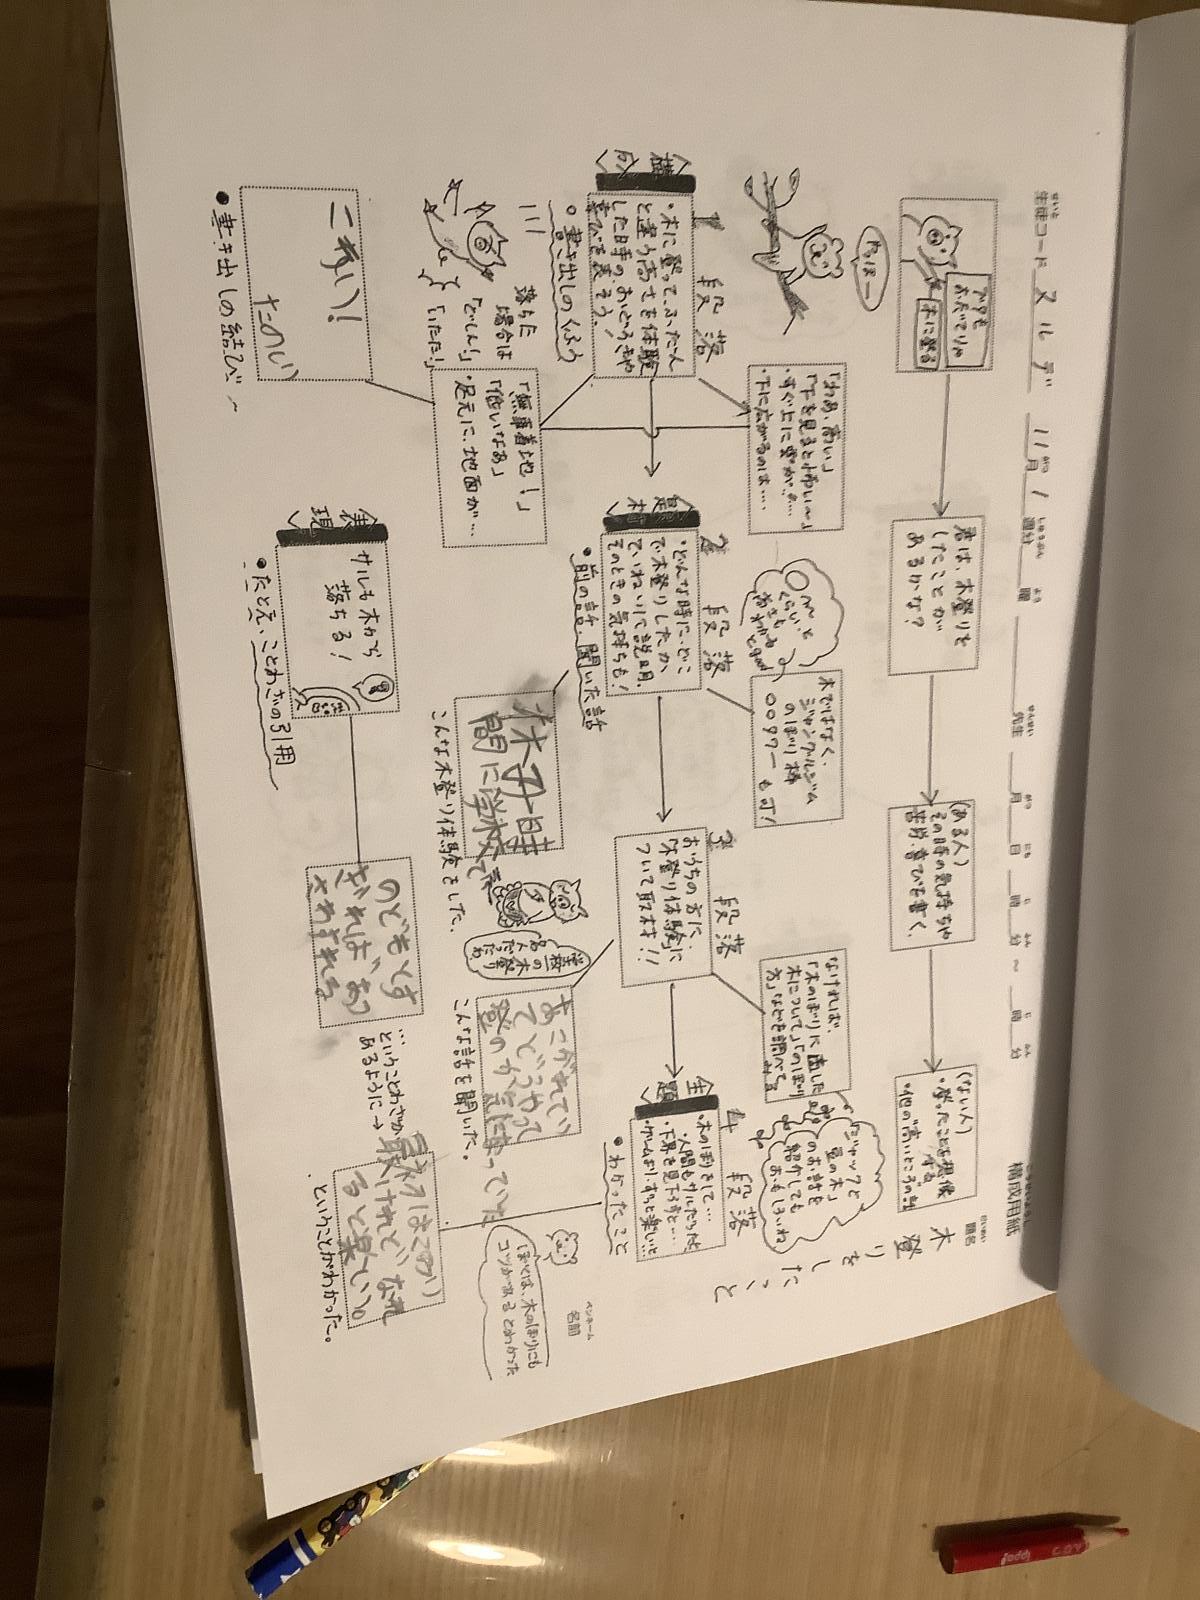 せいと
生徒コード
スルデ
11月1週分
曜
先生
月
日
時
分
～
時
分
構成用紙
題名
木登りをしたこと
ペンネーム
名前
ブタも
おだてりゃ
木に登る
君は、木登りを
したことが
あるかな?
(ある人)
その時の気持ちや
苦労・喜びを書く。
(ない人)
・登ったことを想像
する
・他の"高いところ"の話
やっほー
「わあ、高い」
「下を見ると怖い～」
・すぐ上に雲が…
・下に広がるのは….
木ではなく、
ジャングルジム
のぼり棒
〇〇タワー
も可!
なければ、
「木のぼりに適した
木について」「のぼり
方」などを調べて
みる
「ジャックと
豆の木」
のお話を
紹介しても
おもしろいね
1段落
〈構成〉
・木に登って、ふだん
と違う高さを体験
した時の、おどろきや
喜びを表そう。
・書き出しのくふう
2段落
〈題材〉
・どんな時に、どこ
で木登りしたか
ていねいに説明。
そのときの気持ちも!
・前の話、聞いた話
3段落
おうちの方に、
「木登り体験」に
ついて取材!!
4段落
〈主題〉
・木のぼりをして…
・人間もサルだった
・下界を見下ろすと…
・ゲームより、ずっと楽しい
・わかったこと
落ちた
場合は
「どしん!」
「いたた!」
「無事着地!」
「低いなあ」
・足元に、地面が…
休み時
間に学校で
こんな木登り体験をした。
あこがれてい
てどうやって
登るのか
こんな話を聞いた。
ぼくは、木のぼりにも
コツがあるとわかった
こわい!
たのしい
・書き出しの結び
〈表現〉
サルも木から
落ちる!
・たとえ、ことわざの引用
のどもとす
ぎればあつ
さわすれる
…ということわざが
あるように→
最初はこわい
けれどなれ
ると楽しい。
ということがわかった。